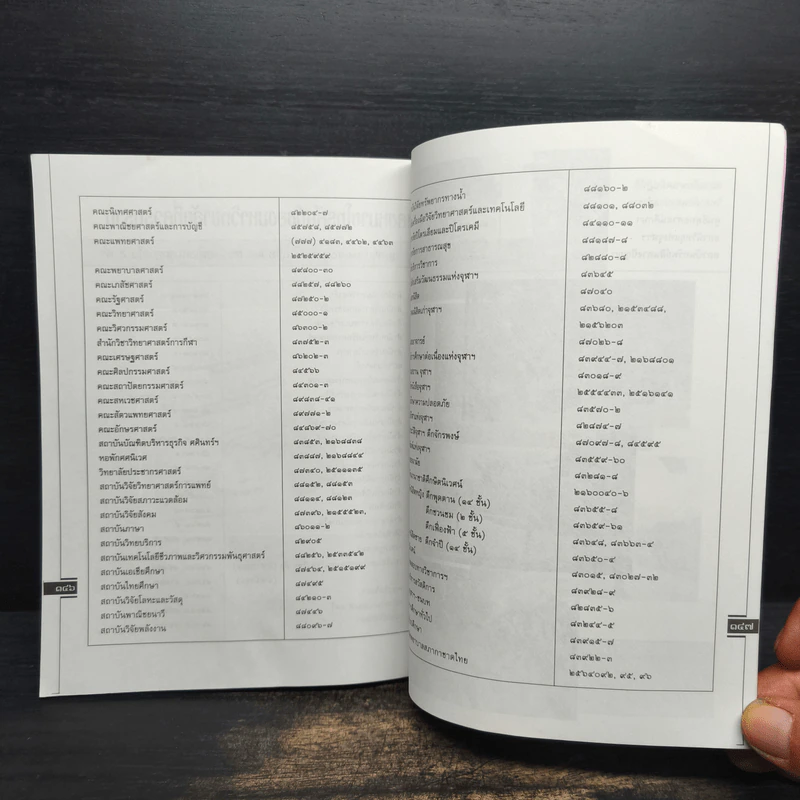 คณะนิเทศศาสตร์ ๘๒๒๐๕-๗
คณะพาณิชยศาสตร์และการบัญชี ๘๕๗๕๘, ๘๕๗๗๒
คณะแพทยศาสตร์ (๗๗๗) ๔๑๘๓, ๔๕๖๒, ๔๔๖๓
๒๕๒๕๙๕๙
คณะพยาบาลศาสตร์ ๘๙๘๐๐-๓๐
คณะเภสัชศาสตร์ ๘๘๒๕๗, ๘๘๒๖๐
คณะรัฐศาสตร์ ๘๗๒๕๐-๒
คณะวิทยาศาสตร์ ๘๕๐๐๐-๑
คณะวิศวกรรมศาสตร์ ๘๖๓๐๐-๒
สำนักวิชาวิทยาศาสตร์การกีฬา ๘๓๗๕๒-๓
คณะเศรษฐศาสตร์ ๘๖๒๐๒-๓
คณะศิลปกรรมศาสตร์ ๘๔๕๖๖
คณะสถาปัตยกรรมศาสตร์ ๘๔๓๐๑-๓
คณะสหเวชศาสตร์ ๘๙๘๓๘-๔๑
คณะสัตวแพทยศาสตร์ ๘๙๗๗๑-๒
คณะอักษรศาสตร์ ๘๔๘๖๙-๗๐
สถาบันบัณฑิตบริหารธุรกิจ ศศินทร์ฯ ๘๓๘๕๓, ๒๑๖๘๘๓๘
หอพักศศนิเวศ ๘๓๘๘๗, ๒๑๖๘๘๔๔
วิทยาลัยประชากรศาสตร์ ๘๗๓๔๐, ๒๕๑๑๑๓๕
สถาบันวิจัยวิทยาศาสตร์การแพทย์ ๘๘๑๕๒, ๘๘๑๕๓
สถาบันวิจัยสภาวะแวดล้อม ๘๘๑๑๔, ๘๘๑๒๓
สถาบันวิจัยสังคม ๘๗๓๙๖, ๒๑๕๕๕๒๓,
สถาบันภาษา ๘๖๐๑๑-๒
สถาบันวิทยบริการ ๘๒๙๐๕
สถาบันเทคโนโลยีชีวภาพและวิศวกรรมพันธุศาสตร์ ๘๘๒๕๖, ๒๕๓๓๕๔๒
สถาบันเอเชียศึกษา ๘๗๔๖๔, ๒๕๑๕๑๙๙
สถาบันไทยศึกษา ๘๗๔๙๕
สถาบันวิจัยโลหะและวัสดุ ๘๔๒๑๐-๓
สถาบันพาณิชยนาวี ๘๗๔๔๖
สถาบันวิจัยพลังงาน ๘๘๐๙๖-๗
๑๔๖
ทรัพยากรทางน้ำ ๘๘๑๖๐-๒
วิจัยวิทยาศาสตร์และเทคโนโลยี ๘๘๑๐๑, ๘๘๐๓๒
ปิโตรเลียมและปิโตรเคมี ๘๔๑๑๐-๑๑
สาธารณสุข ๘๘๑๘๗-๘
วิชาการ ๘๒๘๘๐-๘
วัฒนธรรมแห่งจุฬาฯ ๘๓๖๔๕
๘๗๐๔๐
เก่าจุฬาฯ ๘๓๖๘๐, ๒๑๕๓๔๘๘,
๒๑๕๖๒๐๓
อาจารย์ ๘๗๐๒๖-๘
การศึกษาต่อเนื่องแห่งจุฬาฯ ๘๓๙๔๔-๗, ๒๑๖๘๘๐๑
จุฬาฯ ๘๓๐๑๘-๙
จุฬาฯ ๒๕๕๔๔๓๓, ๒๕๑๖๑๔๑
ความปลอดภัย ๘๓๕๗๐-๒
แห่งจุฬาฯ ๘๒๘๗๔-๗
จุฬาฯ ตึกจักรพงษ์ ๘๗๐๙๗-๘, ๘๔๕๙๕
แห่งจุฬาฯ ๘๓๕๕๙-๖๐
๘๓๒๘๑-๔
นานาชาติศึกษิตนิเวศน์ ๒๑๖๐๐๔๐-๖
ตึกพุดตาน (๑๔ ชั้น) ๘๓๖๕๕-๘
ตึกชวนชม (๒ ชั้น) ๘๓๖๕๙-๖๑
ตึกเฟื่องฟ้า (๕ ชั้น) ๘๓๖๔๘, ๘๓๖๖๓-๔
ตึกจำปี (๑๔ ชั้น) ๘๓๖๕๐-๔
๘๓๐๑๕, ๘๓๐๒๗-๓๒
ทางวิชาการฯ ๘๓๙๒๘-๙
สวัสดิการ ๘๒๘๓๕-๖
ชนบท ๘๓๒๔๔-๕
ทั่วไป ๘๓๙๑๕-๗
ศึกษา ๘๓๙๒๒-๓
สภากาชาดไทย ๒๕๖๔๐๙๒, ๙๕, ๙๖
๑๔๗